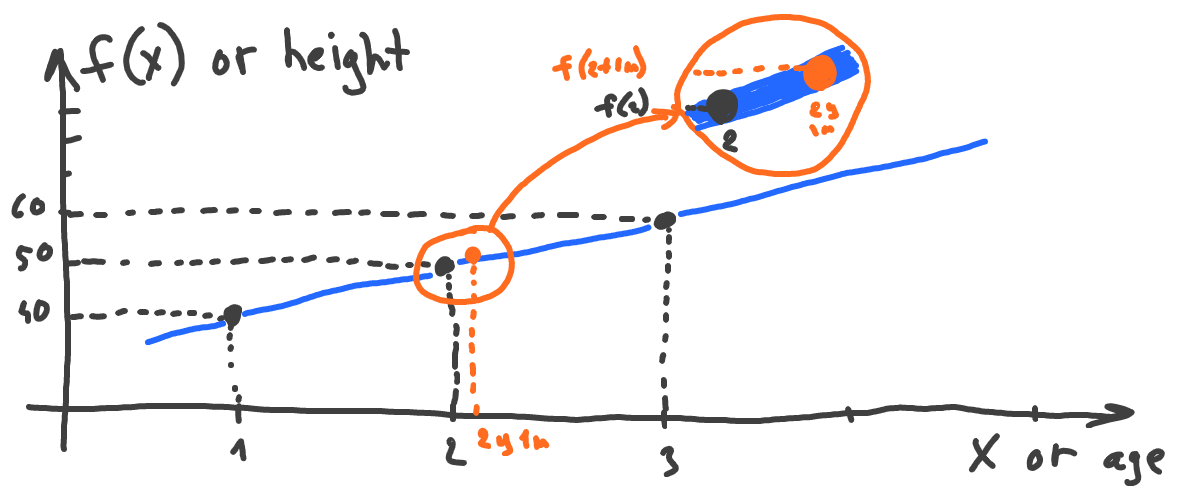 f(x) or height
f(2+1m)
f(2)
2
2y
1m
60
50
40
1
2
2y1m
3
X or age